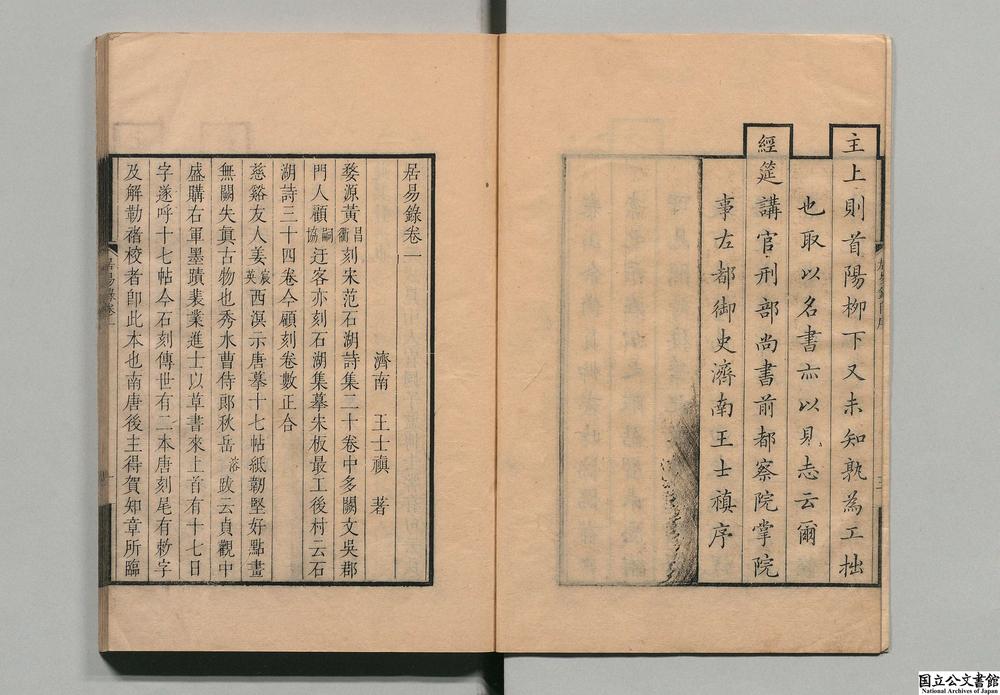 主上則首陽柳下又未知孰為工拙
也取以名書亦以見志云爾
經筵講官刑部尚書前都察院掌院
事左都御史濟南王士禛序
居易錄卷一
濟南 王士禛 著
婺源黃昌衢刻宋范石湖詩集二十卷中多闕文吳郡
門人顧嗣協迂客亦刻石湖集摹宋板最工後村云石
湖詩三十四卷今顧刻卷數正合
慈谿友人姜宸英西溟示唐摹十七帖紙韌堅好點畫
無闕失真古物也秀水曹侍郎秋岳溶跋云貞觀中
盛購右軍墨蹟裴業進士以草書來上首有十七日
字遂呼十七帖今石刻傳世有二本唐刻尾有敕字
及解勒禇校者卽此本也南唐後主得賀知章所臨
居易錄卷一
国立公文書館
National Archives of Japan